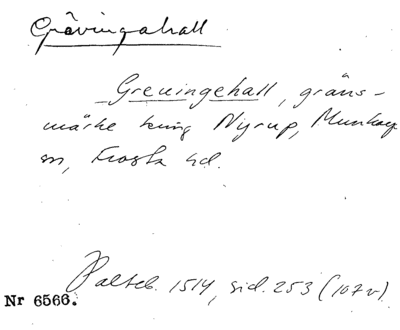 Grävingahall
Greuingehall, gräns-
märke kring Nyrup, Munkarp
sn, Frosta hd.
Palteb. 1514, sid. 253 (107v)
Nr 6566.